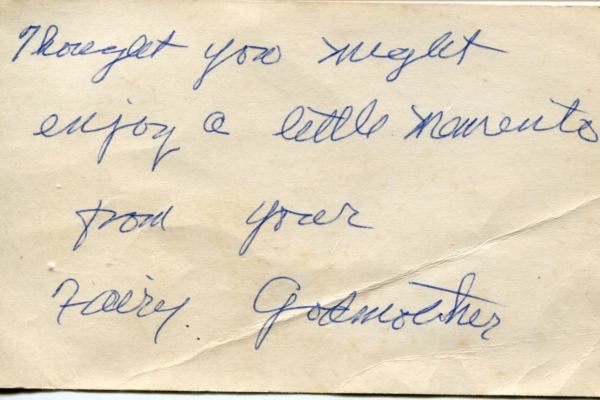 Thought you might
enjoy a little momento
from your
Fairy Godmother